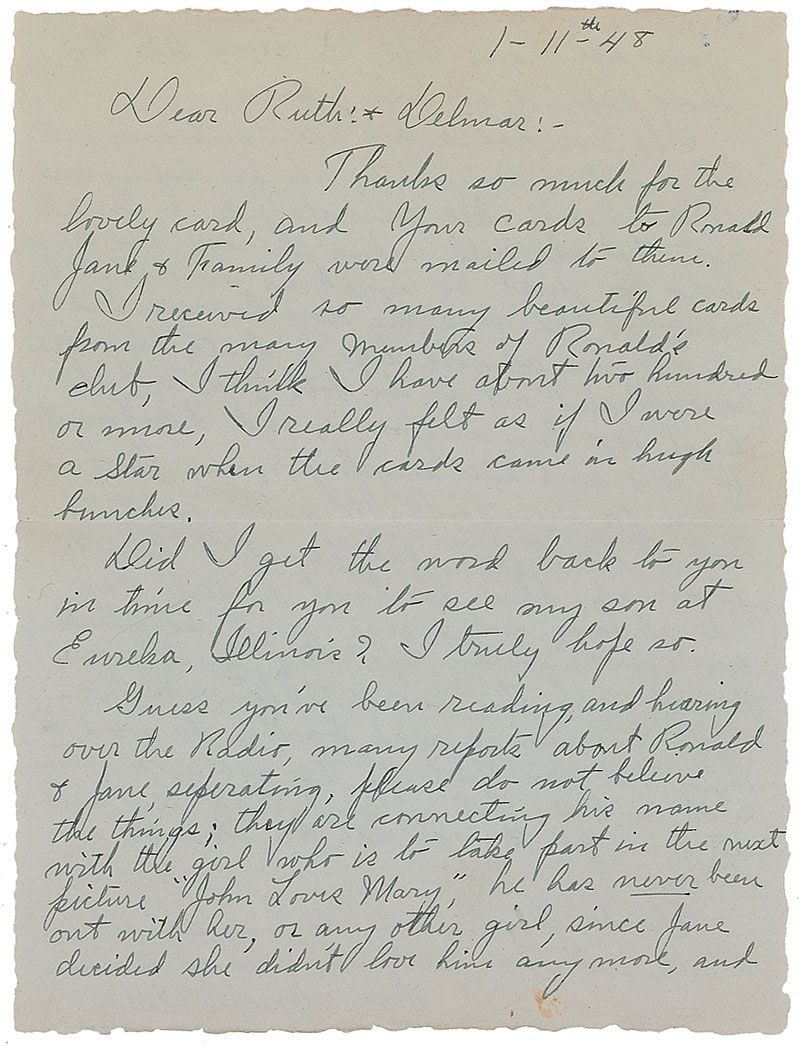 1-11th-48
Dear Ruth: & Delmar:-
Thanks so much for the
lovely card, and Your cards to Ronald
Jane & Family were mailed to them.
I received so many beautiful cards
from the many members of Ronald's
club, I think I have about two hundred
or more, I really felt as if I were
a Star when the cards came in hugh
bunches.
Did I get the word back to you
in time for you to see my son at
Eureka, Illinois? I truly hope so.
Guess you've been reading, and hearing
over the Radio, many reports about Ronald
& Jane, seperating, please do not beleive
the things; they are connecting his name
with the girl who is to take part in the next
picture "John Loves Mary," he has never been
out with her, or any other girl, since Jane
decided she didn't love him anymore, and